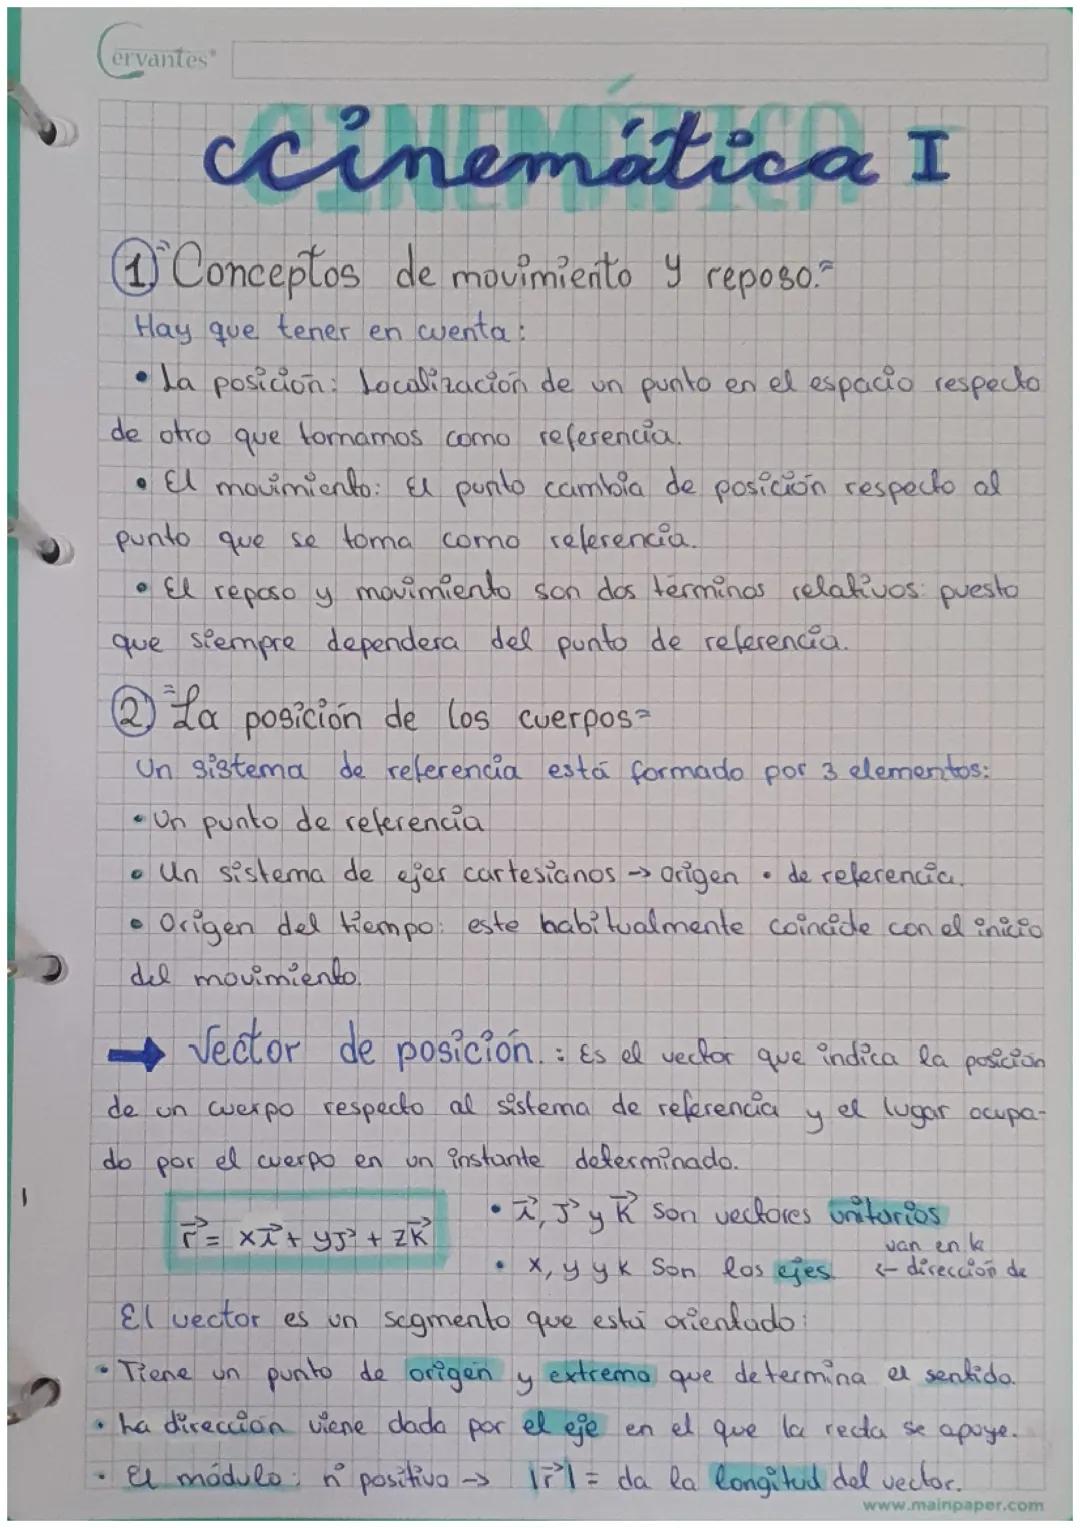 Cervantes®
CINEMÁTICA
ccinemática I
1) "Conceptos de movimiento y reposo."
Hay que tener en cuenta:
• La posición: Localización de un punto en el espacio respecto
de otro que tomamos como referencia.
• El movimiento: El punto cambia de posición respecto al
punto que se toma como referencia.
• El reposo y movimiento son dos términos relativos: puesto
que siempre dependera del punto de referencia.
2) "La posición de los cuerpos"
Un sistema de referencia está formado por 3 elementos:
• Un punto de referencia
• Un sistema de ejer cartesianos → origen • de referencia.
• Origen del tiempo: este habitualmente coincide con el inicio
del movimiento.
→ Vector de posición.: Es el vector que indica la posición
de un cuerpo respecto al sistema de referencia y el lugar ocupa-
do por el cuerpo en un instante determinado.
r⃗ = xi⃗ + yj⃗ + zk⃗
• i⃗, j⃗ y k⃗ son vectores unitarios
van en la
• x, y y k son los ejes. ← dirección de
El vector es un segmento que está orientado:
• Tiene un punto de origen y extremo que determina el sentido.
• La dirección viene dada por el eje en el que la recta se apoye.
• El módulo: nº positivo → |r⃗| = da la longitud del vector.
www.mainpaper.com